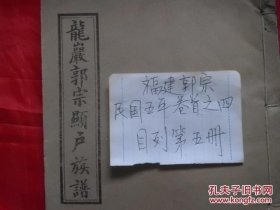 龍巖郭宗顯户族譜
福建郭宗
民国五年卷首之四
目列第五册